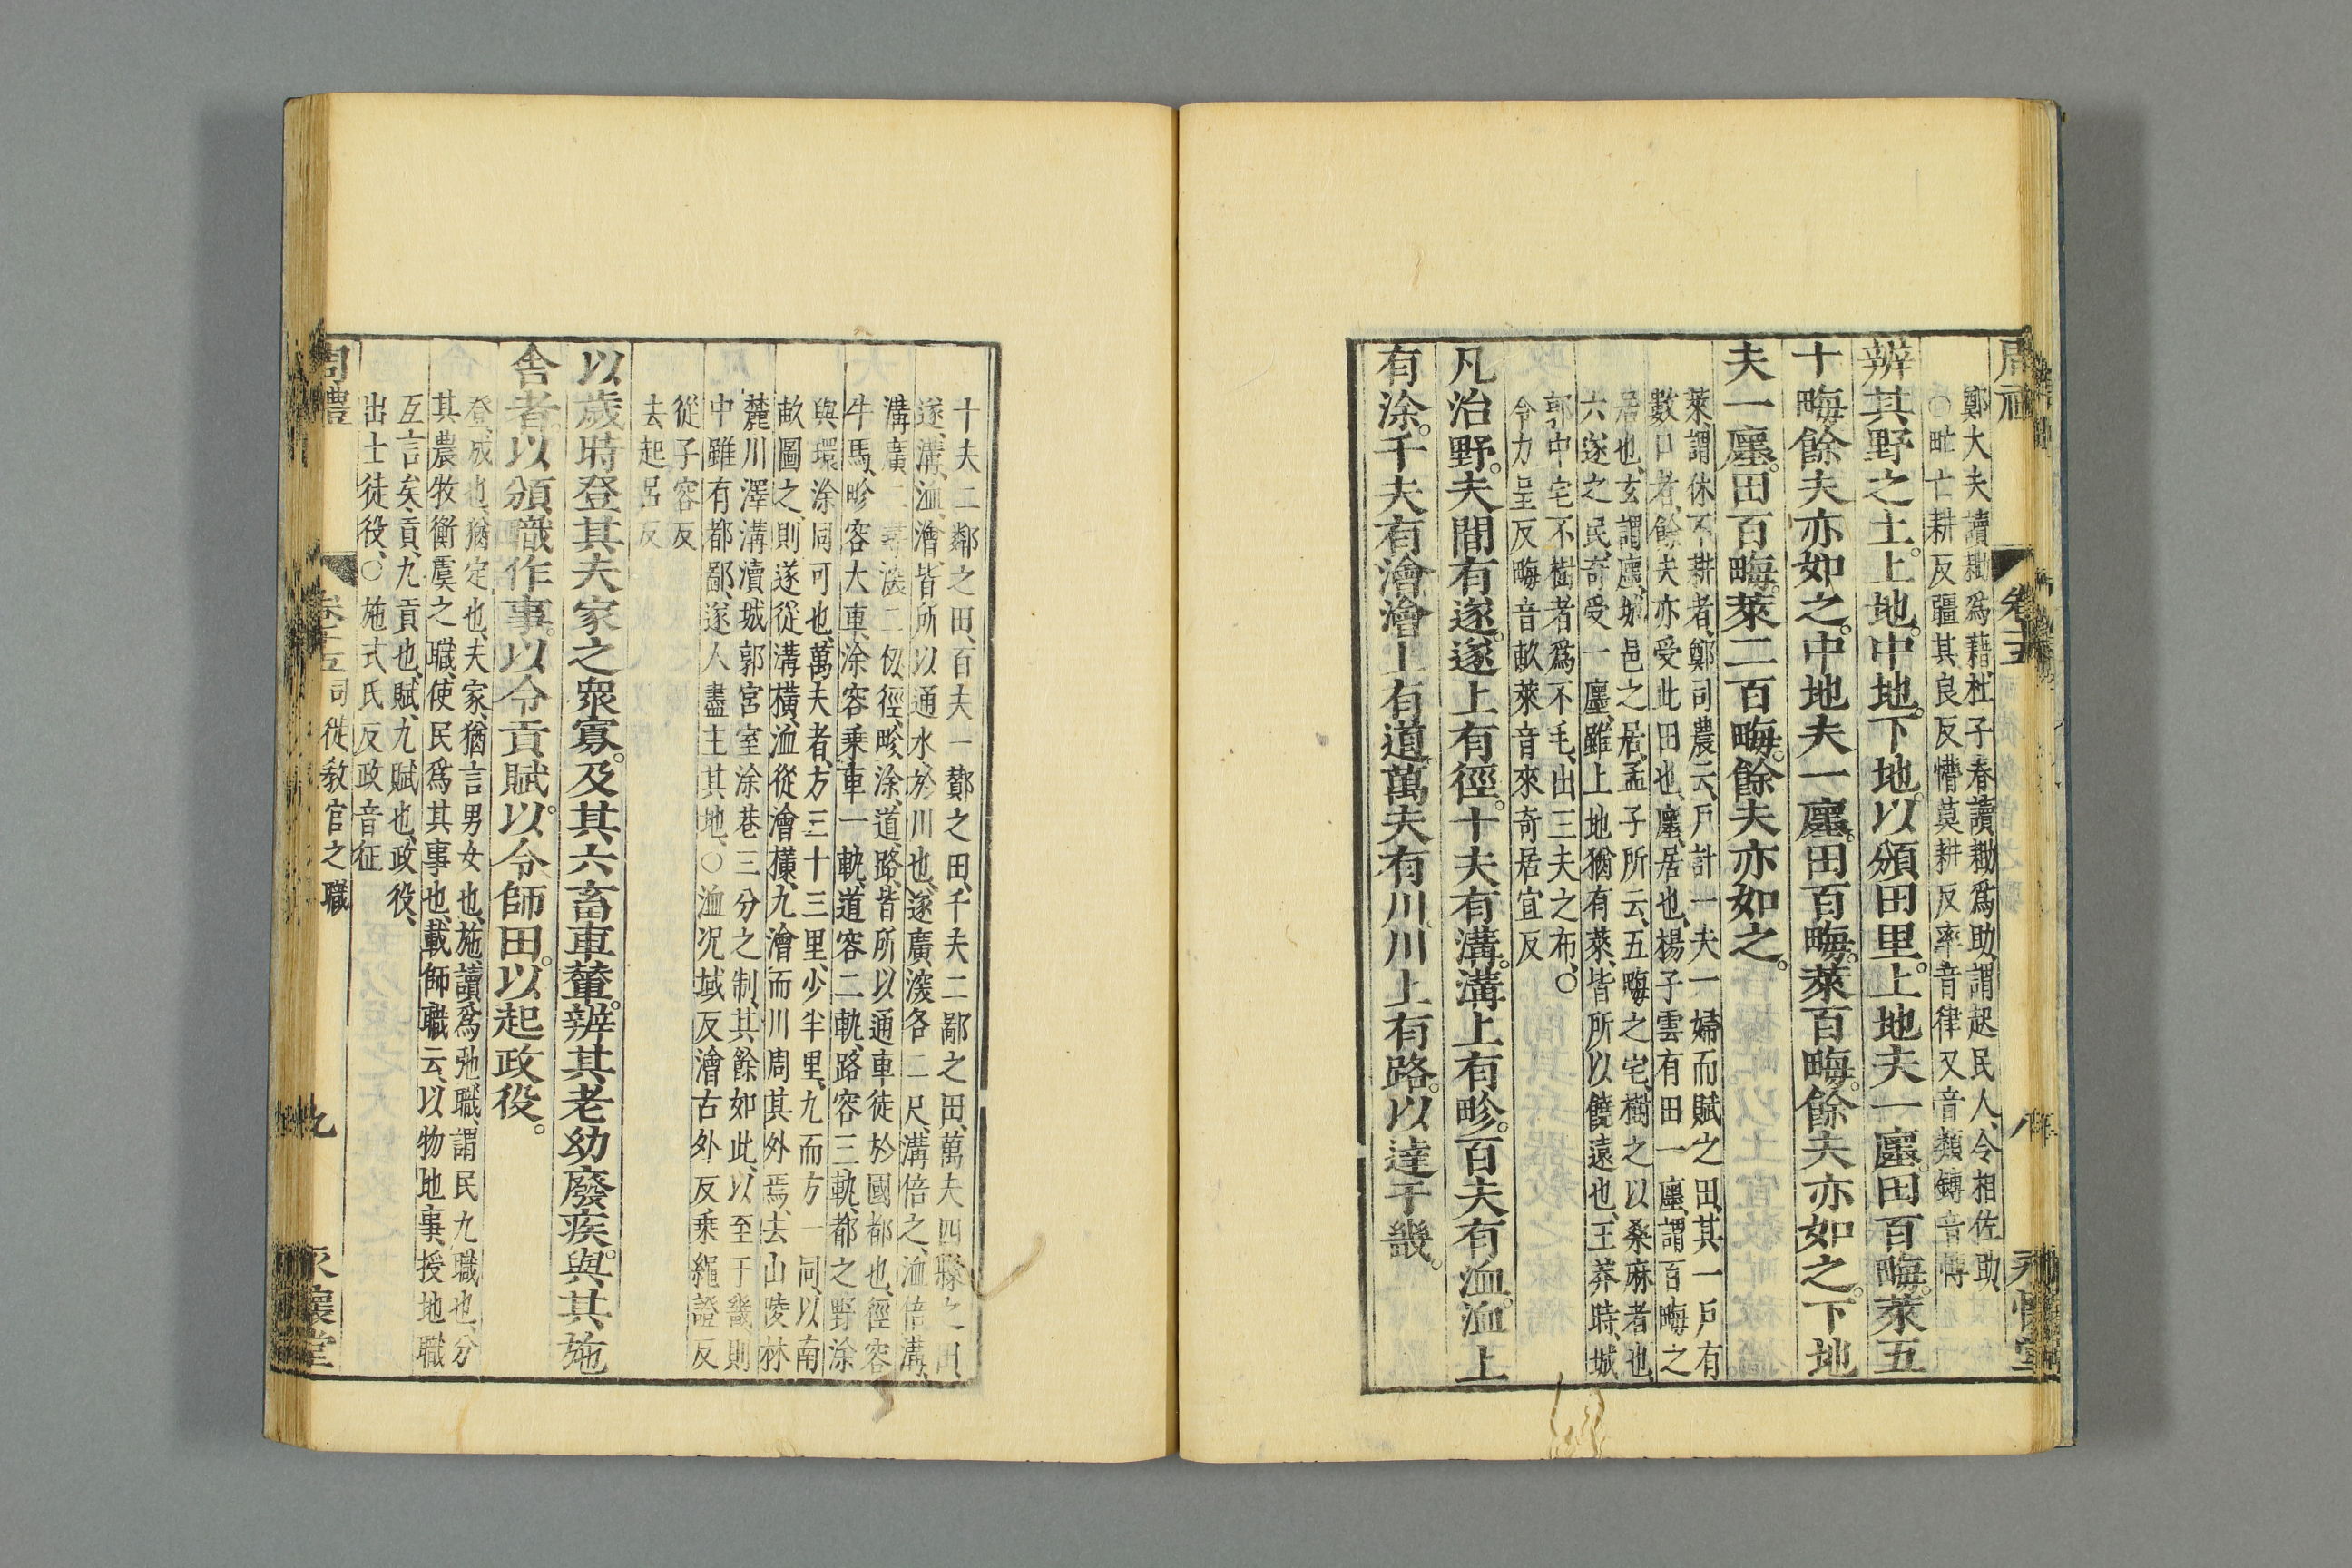 周禮
卷十五
八
永懷堂
鄭大夫讀耡爲藉、杜子春讀耡爲助、謂起民人、令相佐助、
○甿亡耕反疆其良反懵莫耕反率音律又音類鏄音博
辨其野之土。上地。中地。下地。以頒田里。上地夫一廛。田百畮。萊五
十畮餘夫亦如之。中地夫一廛。田百畮。萊百畮。餘夫亦如之。下地
夫一廛。田百畮。萊二百畮。餘夫亦如之。
萊、謂休不耕者、鄭司農云、戶計一夫一婦而賦之田、其一戶有
數口者、餘夫亦受此田也、廛、居也、楊子雲有田一廛、謂百畮之
居也、玄謂廛、城邑之居、孟子所云、五畮之宅、樹之以桑麻者也、
六遂之民、奇受一廛、雖上地猶有萊、皆所以饒遠也、王莽時、城
郭中宅不樹者爲不毛、出三夫之布、○
令力呈反畮音畝萊音來奇居宜反
凡治野。夫間有遂。遂上有徑。十夫有溝。溝上有畛。百夫有洫。洫上
有涂。千夫有澮澮上有道。萬夫有川。川上有路。以達于畿。
十夫二鄰之田、百夫一酇之田、千夫二鄙之田、萬夫四縣之田、
遂、溝、洫、澮、皆所以通水、於川也、遂廣深各二尺、溝倍之、洫倍溝、
澮廣二尋深二仞、徑、畛、涂、道、路、皆所以通車徒於國都也、徑容
牛馬、畛容大車、涂容乘車一軌、道容二軌、路容三軌、都之野涂
與環涂同可也、萬夫者、方三十三里、少半里、九而方一同、以南
畝圖之、則遂從溝橫、洫從澮橫、九澮而川周其外焉、去山陵林
麓川澤溝瀆城郭宮室涂巷三分之制、其餘如此、以至于畿、則
中雖有都鄙、遂人盡主其地、○洫况域反澮古外反乘繩證反
從子容反
去起呂反
以歲時登其夫家之衆寡。及其六畜車輦。辨其老幼廢疾。與其施
舍者。以頒職作事。以令貢賦。以令師田。以起政役。
登、成也、猶定也、夫家、猶言男女也、施、讀爲弛、職、謂民九職也、分
其農牧衡虞之職、使民爲其事也、載師職云、以物地事、授地職
互言矣、貢、九貢也、賦、九賦也、政役、
出士徒役、○施式氏反政音征
周禮
卷十五
司徒敎官之職
九
永懷堂